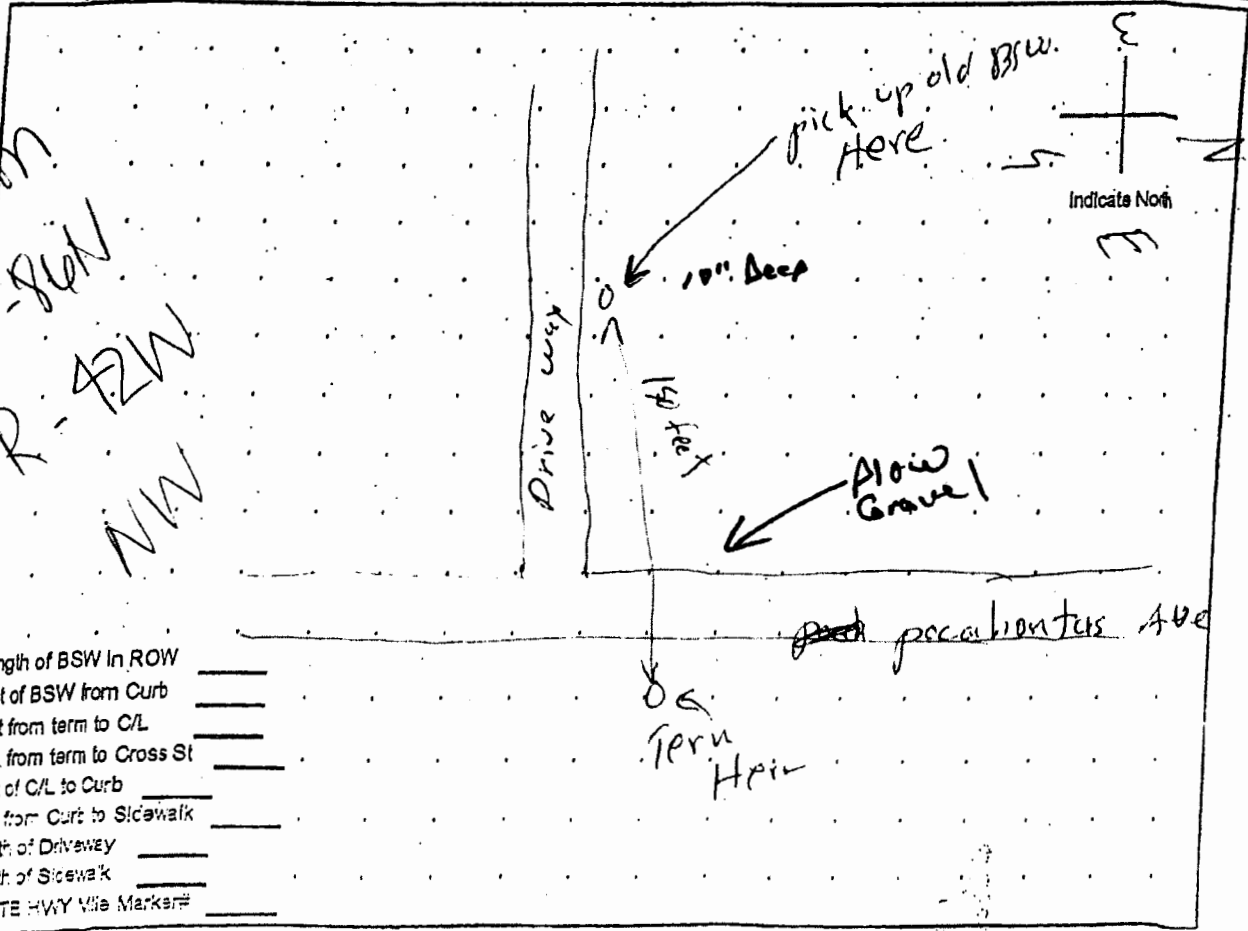 pick up old BSW.
Here
Indicate North
S
N
E
-86N
R - 42W
NW
10" Deep
Drive way
feet
Plow
Gravel
Ave
Term
Heir
ngth of BSW In ROW
t of BSW from Curb
t from term to C/L
from term to Cross St
of C/L to Curb
from Curb to Sidewalk
th of Driveway
th of Sidewalk
TE HWY Mile Marker#